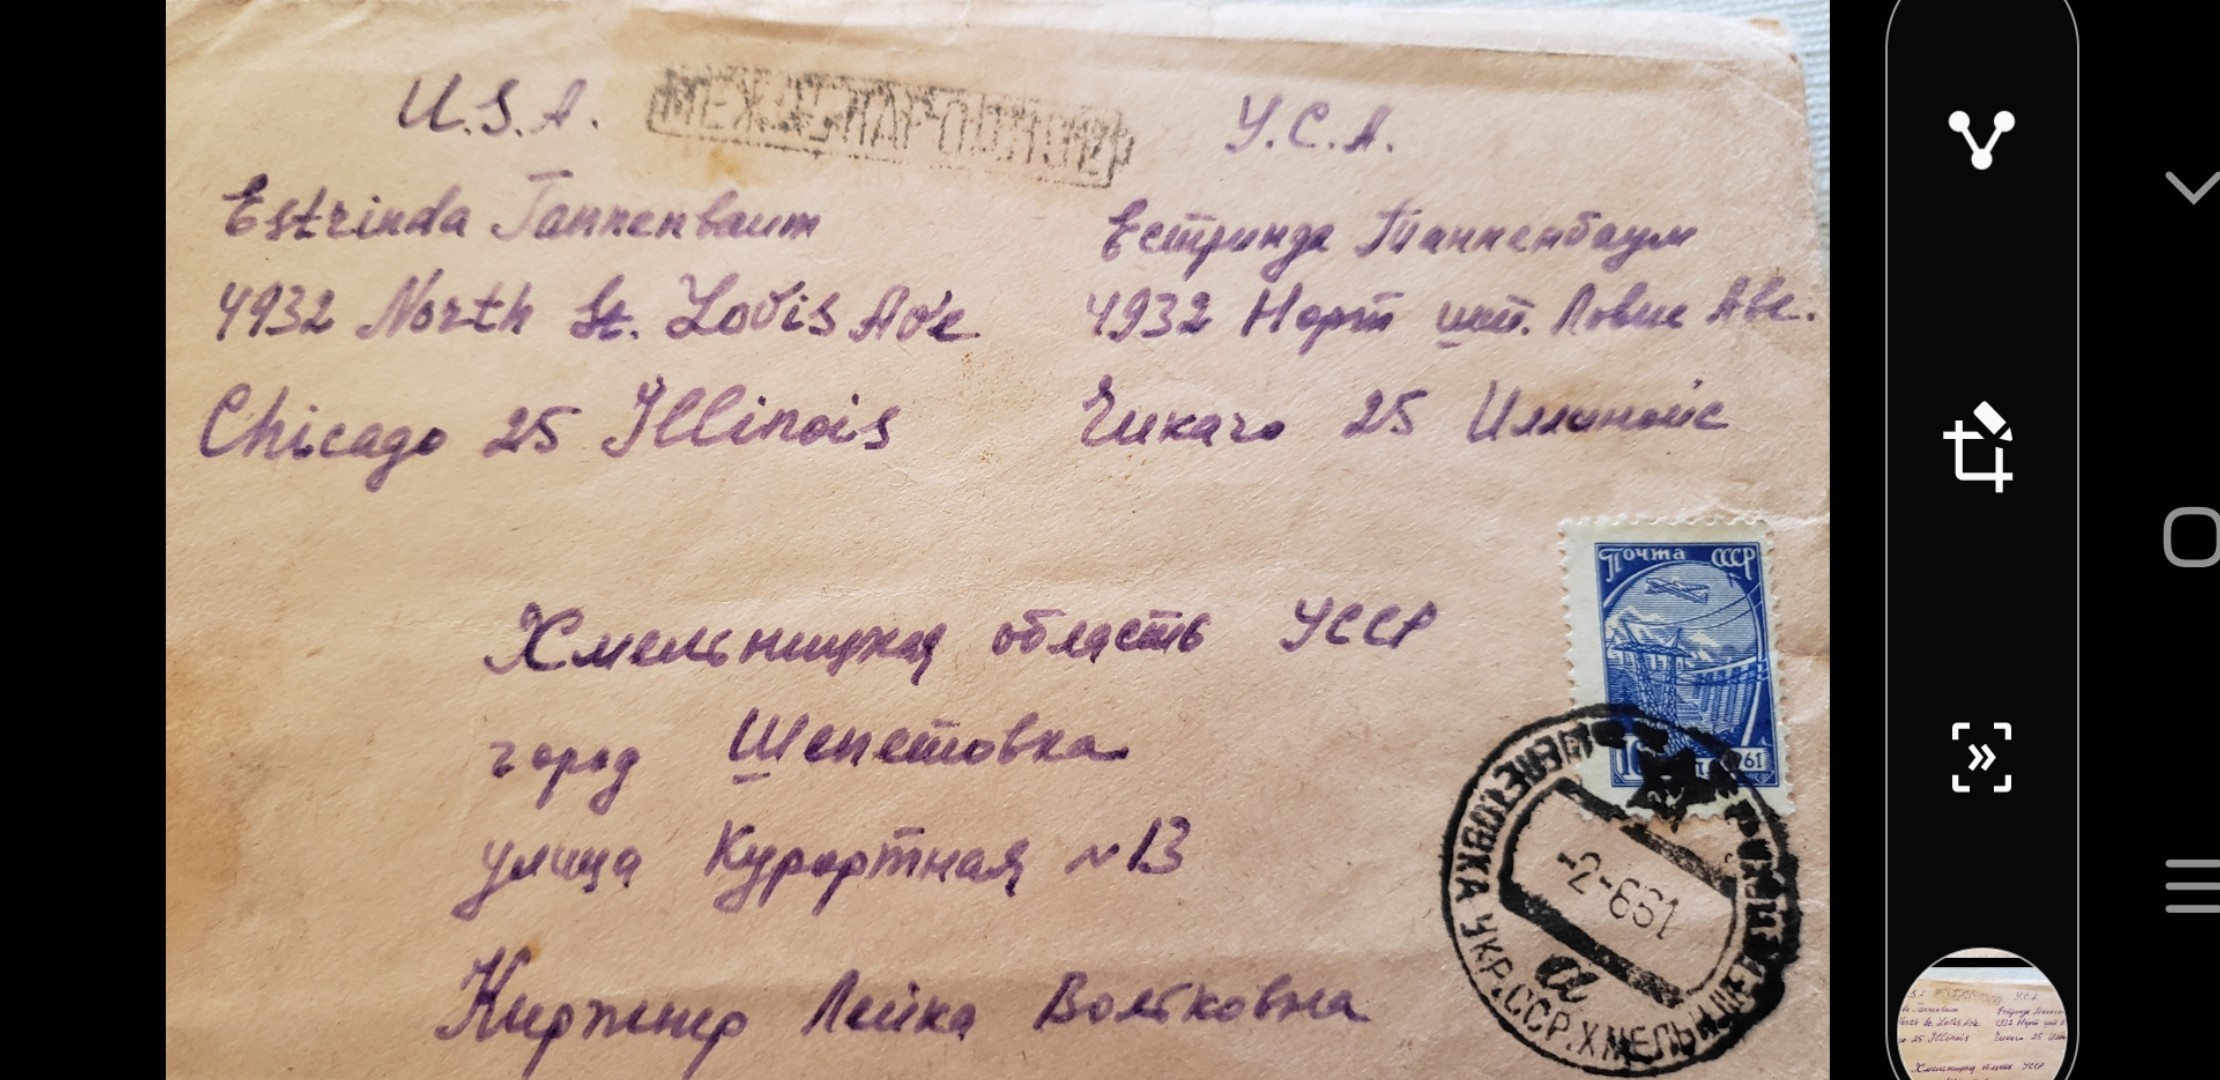 U.S.A.
МЕЖДУНАРОДНОЕ
У.С.А.
Estrinda Tannenbaum
4932 North St. Lovis Ave
Chicago 25 Illinois
Естринда Танненбаум
4932 Норт шт. Ловис Аве.
Чикаго 25 Иллинойс
Почта СССР
10
1961
Хмельницкая область УССР
город Шепетовка
улица Курортная №13
Лейка Волковна
ШЕПЕТОВКА УКР.ССР.ХМЕЛЬНИЦ
а